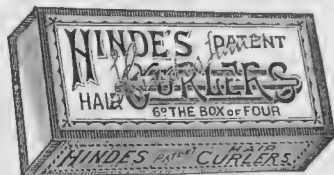 HINDE'S PATENT
HAIR CURLERS
6D THE BOX OF FOUR
HINDES PATENT HAIR CURLERS.